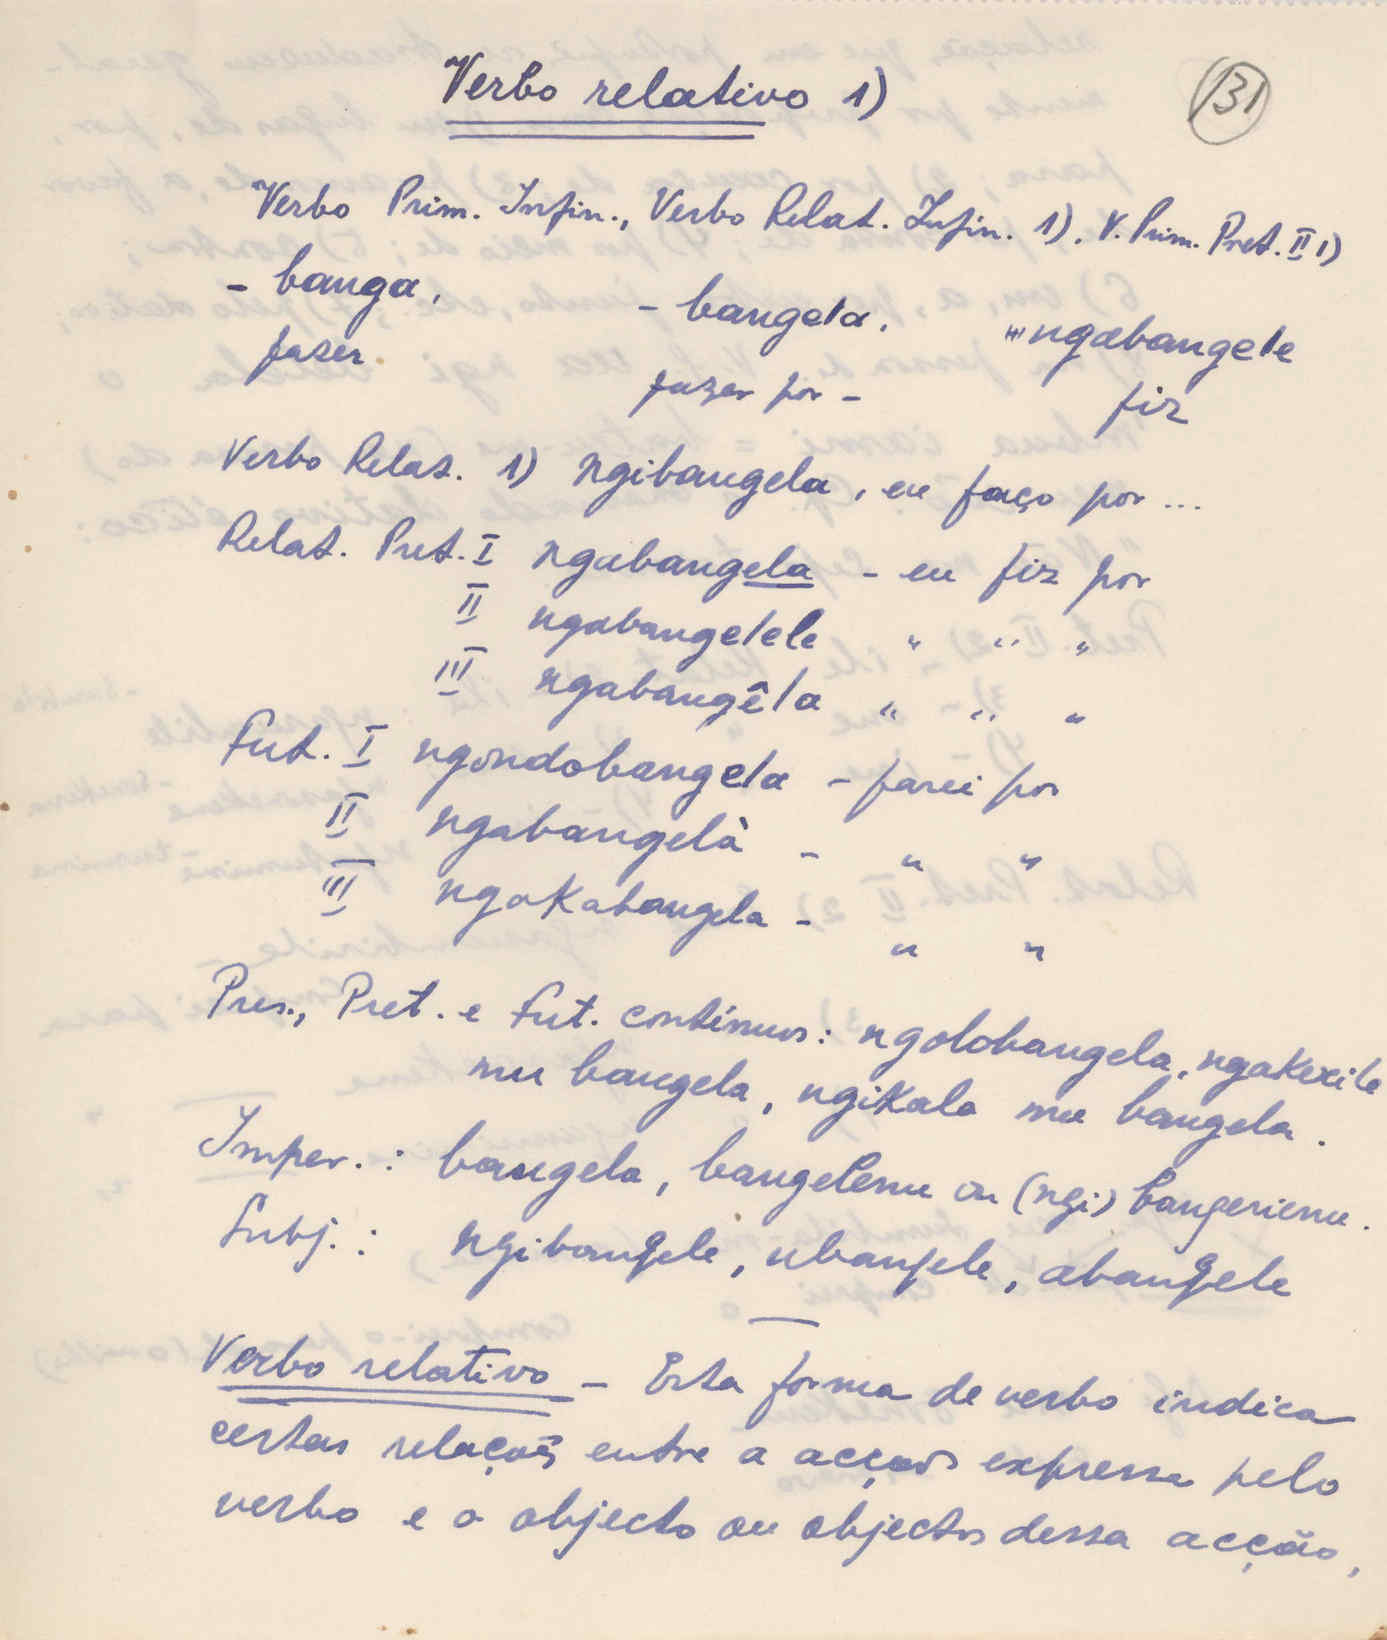 Verbo relativo 1)
131
Verbo Prim. Infin., Verbo Relat. Infin. 1). V. Prim. Pret. II 1)
- banga, - bangela. ngabangele
fazer fazer por - fiz
Verbo Relat. 1) ngibangela, eu faço por ...
Relat. Pret. I ngabangela - eu fiz por
II ngabangelele " " "
III ngabangêla " " "
Fut. I ngondobangela - farei por
II ngabangelà - " "
III ngakabangela - " "
Pres., Pret. e Fut. contínuos: ngolobangela, ngakexile
mu bangela, ngikala mu bangela.
Imper.: bangela, bangelenu ou (ngi) bangerienu.
Subj.: ngibangele, ubangele, abangele
Verbo relativo - Esta forma de verbo indica
certas relações entre a acção expressa pelo
verbo e o objecto ou objectos dessa acção,